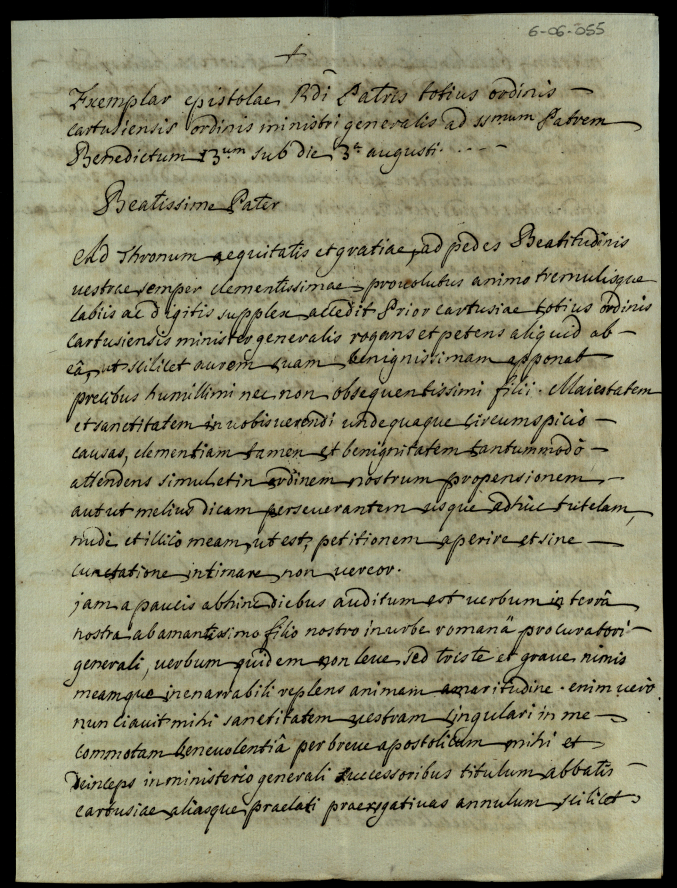 6-06-055
+
Exemplar epistolae Rdi Patris totius ordinis —
cartusiensis ordinis ministri generalis ad ssmum Patrem
Benedictum 13um sub die 3a augusti. - - - -
Beatissime Pater
Ad Thronum aequitatis et gratiae, ad pedes Beatitudinis
vestrae semper clementissimae provolutus animo tremulisque
labiis ac digitis supplex accedit Prior cartusiae totius ordinis
cartusiensis minister generalis rogans et petens aliquid ab —
eâ, ut scilicet aurem suam benignissimam apponat
precibus humillimi nec non obsequentissimi filii. Maiestatem
et sanctitatem in vobis verendi undequaque circumspicio —
causas, clementiam tamen et benignitatem tantummodò —
attendens simul et in ordinem nostrum propensionem —
aut ut melius dicam perseverantem usque adhuc tutelam,
nudè et illicò meam, ut est, petitionem aperire et sine —
cunctatione intimare non vereor.
jam a paucis abhinc diebus auditum est verbum in terrâ
nostra ab amantissimo filio nostro in urbe romanâ procuratori —
generali, verbum quidem non leve sed triste et grave nimis
meamque inenarrabili replens animam amaritudine. enim vero
nunciavit mihi sanctitatem vestram singulari in me —
commotam benevolentiâ per breve apostolicum mihi et
deinceps in ministerio generali successoribus titulum abbatis —
cartusiae aliasque praelati praerogativas annulum scilicet